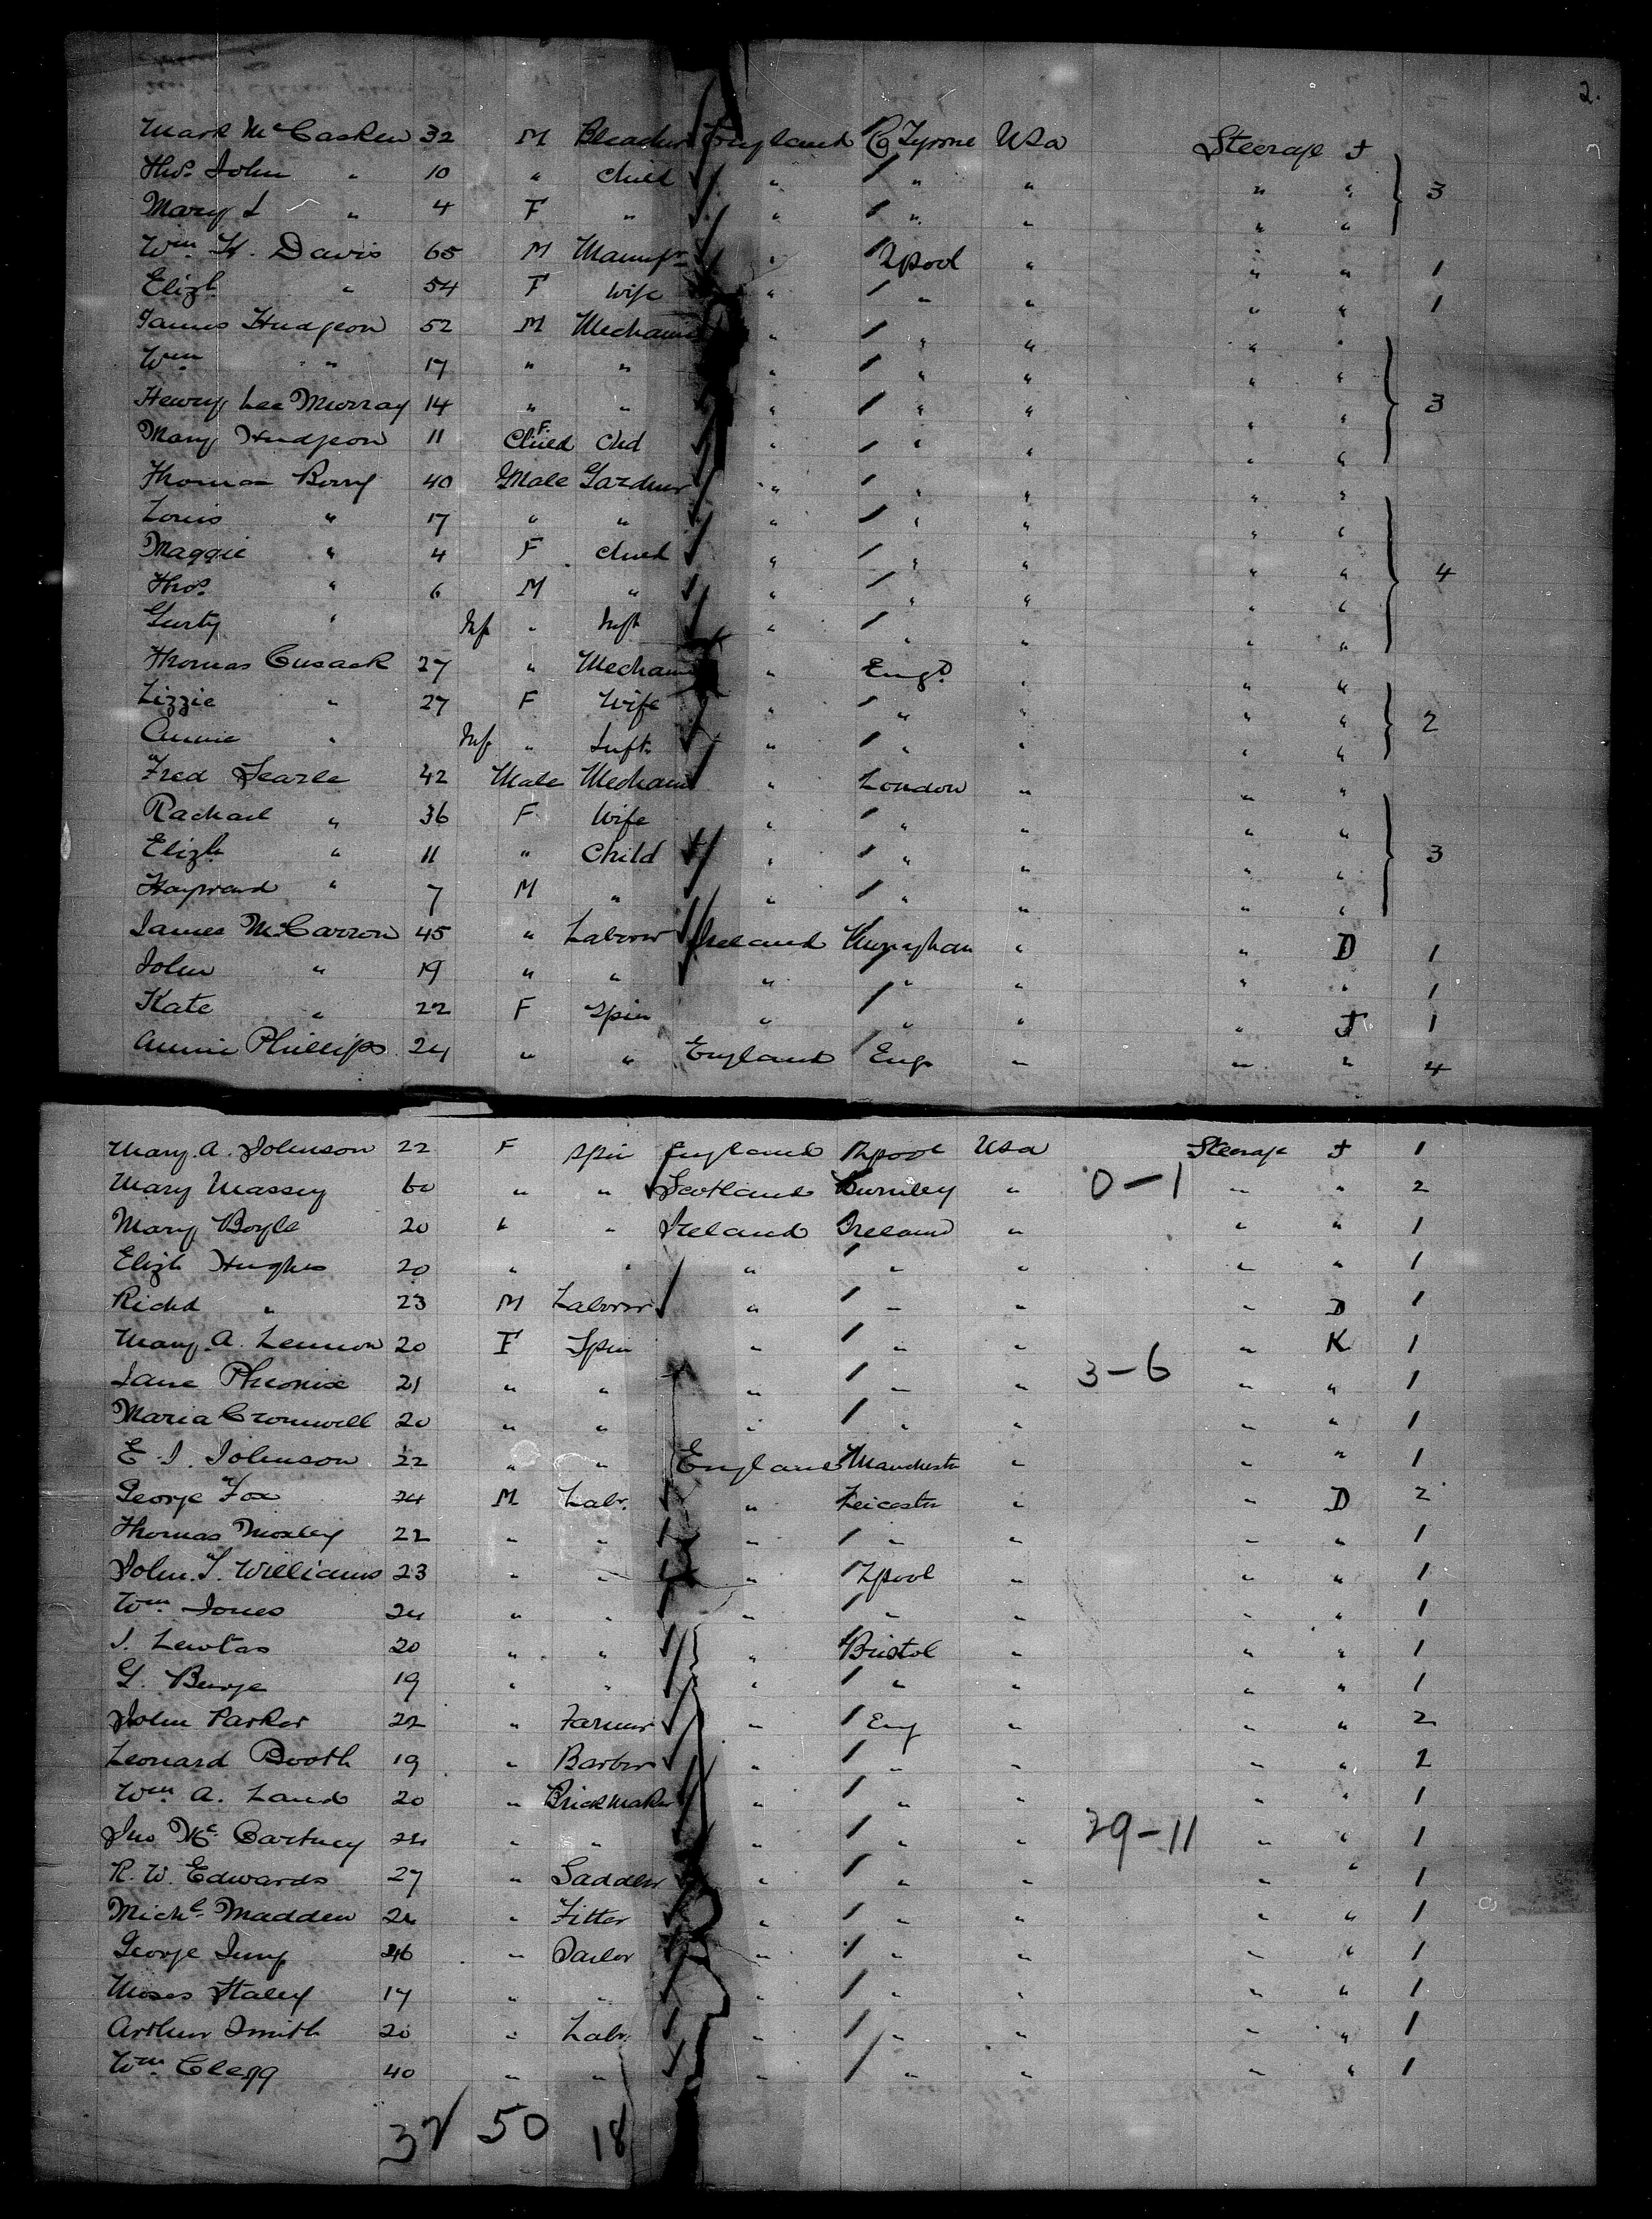 2.
Mark McCasken 32 M Bleacher England Co Tyrone Usa Steerage J
Thos. John " 10 " Child " " " " " 3
Mary J " 4 F " " " " " "
Wm. H. Davis 65 M Manufr " Lpool " " " 1
Elizh " 54 F Wife " " " " " 1
James Hudson 52 M Mechanic " " " " "
Wm " 17 " " " " " " "
Henry Lee Murray 14 " " " " " " " 3
Mary Hudson 11 F. Child Chd " " " " "
Thomas Berry 40 Male Gardner " " " " "
Louis " 17 " " " " " " "
Maggie " 4 F Child " " " " " 4
Thos. " 6 M " " " " " "
Gurty " Inf " Inft " " " " "
Thomas Cusack 27 " Mechanic " Engd. " " "
Lizzie " 27 F Wife " " " " " 2
Annie " Inf " Inft. " " " " "
Fred Searle 42 Male Mechanic " London " " "
Rachael " 36 F Wife " " " " "
Elizh " 11 " Child " " " " " 3
Hayward " 7 M " " " " " "
James McCarron 45 " Laborer Ireland Monaghan " " D 1
John " 19 " " " " " " " 1
Kate " 22 F Spin " " " " J 1
Annie Phillips 24 " " England Eng " " " 4
Mary. A. Johnson 22 F Spin England Lpool Usa Steerage J 1
Mary Massey 60 " " Scotland Burnley " 0-1 " " 2
Mary Boyle 20 " " Ireland Ireland " " " 1
Elizh Hughes 20 " " " " " " " 1
Richd " 23 M Laborer " " " " D 1
Mary. A. Lennon 20 F Spin " " " " K 1
Jane Pheonix 21 " " " " " 3-6 " " 1
Maria Cromwell 20 " " " " " " " 1
E. J. Johnson 22 " " England Manchester " " " 1
George Fox 24 M Labr. " Leicester " " D 2
Thomas Moxley 22 " " " " " " " 1
John. T. Williams 23 " " " Lpool " " " 1
Wm. Jones 24 " " " " " " " 1
J. Lewtas 20 " " " Bristol " " " 1
G. Burge 19 " " " " " " " 1
John Parker 22 " Farmer " Eng " " " 2
Leonard Booth 19 " Barber " " " " " 2
Wm. A. Land 20 " Brickmaker " " " " " 1
Jno Mc. Cartney 24 " " " " " 29-11 " " 1
R. W. Edwards 27 " Saddler " " " " 1
Michl. Madden 24 " Fitter " " " " " 1
George Jump 46 " Sailor " " " " " 1
Moses Staley 17 " " " " " " " 1
Arthur Smith 20 " Labr. " " " " " 1
Wm. Clegg 40 " " " " " " " 1
32 50 18